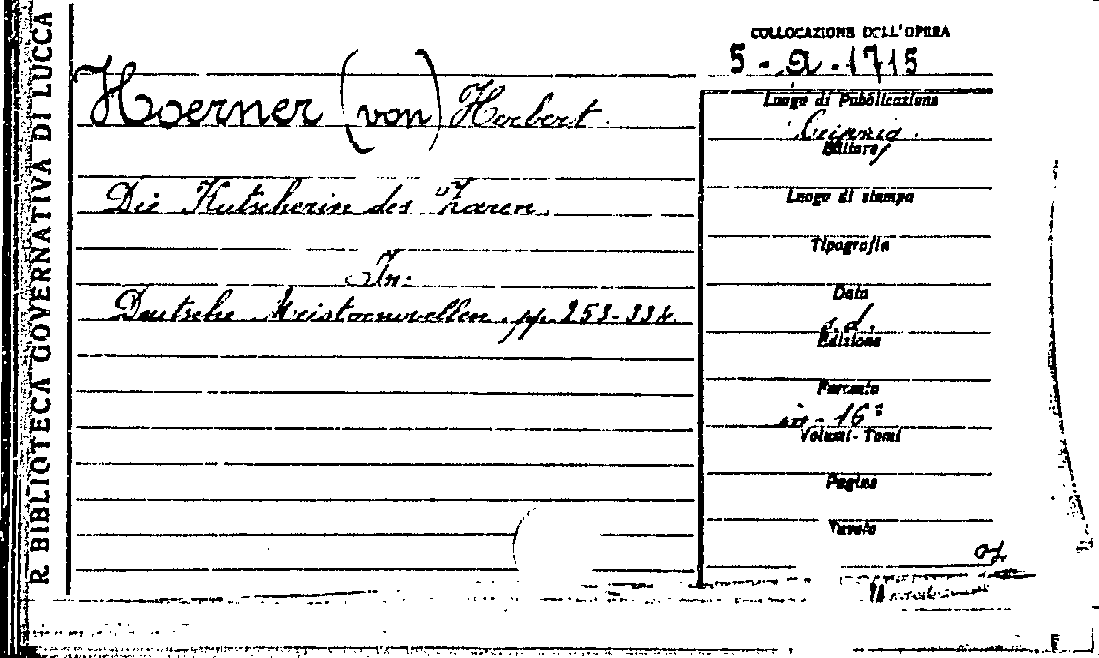 R. BIBLIOTECA GOVERNATIVA DI LUCCA
COLLOCAZIONE DELL'OPERA
5-a-1715
Hoerner (von) Herbert.
Die Kutscherin des Zaren.
In:
Deutsche Meisternovellen. pp. 253-334.
Luogo di Pubblicazione
Leipzig.
Editore
Luogo di stampa
Tipografia
Data
s.d.
Edizione
Formato
in-16°
Volumi-Tomi
Pagine
Tavole